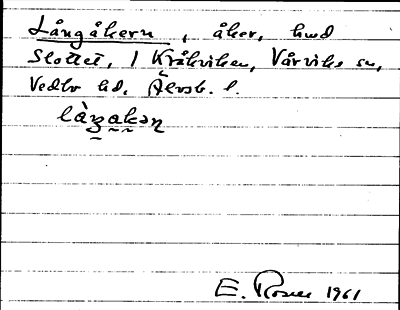 Långåkern, åker, hmd
Slottet, 1 Kråkviken, Vårviks sn,
Vedbo hd, Älvsb. l.
làŋakən
E. Rosén 1961